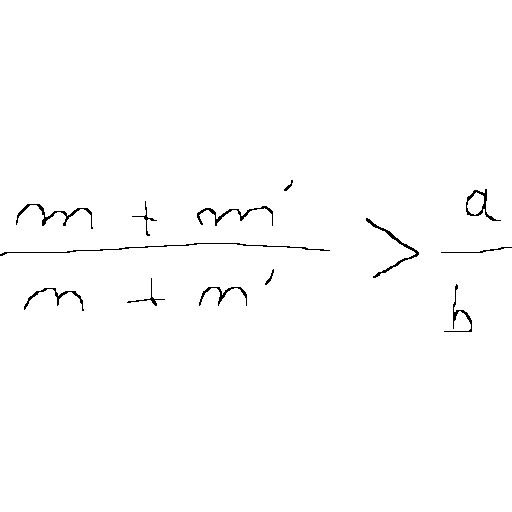 \frac{m + m'}{n + n'} > \frac{a}{b}